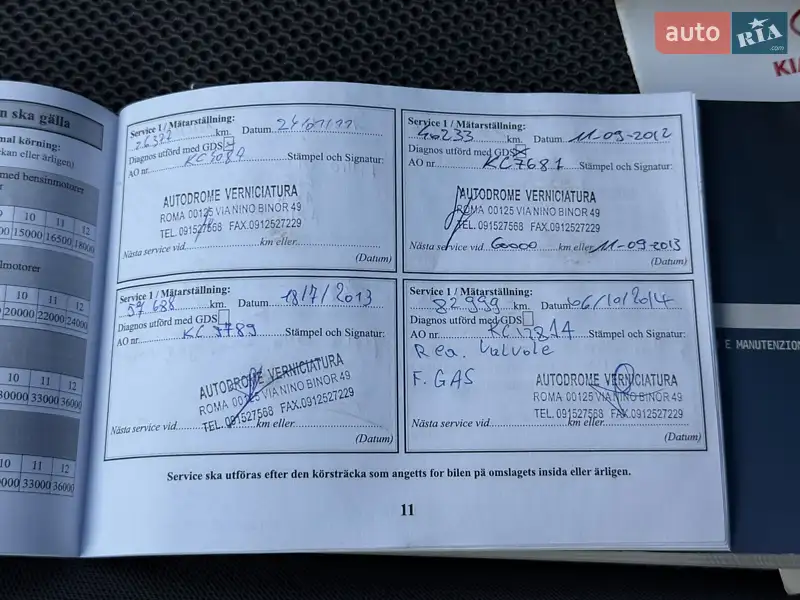 auto RIA .com
KIA
n ska gälla
mal körning:
kan eller årligen)
med bensinmotorer
10 11 12
15000 16500 18000
lmotorer
10 11 12
20000 22000 24000
10 11 12
30000 33000 36000
10 11 12
33000 36000
Service 1 / Mätarställning:
26377 km. Datum
Diagnos utförd med GDS
AO nr. Stämpel och Signatur:
AUTODROME VERNICIATURA
ROMA 00125 VIA NINO BINOR 49
TEL. 091527568 FAX.0912527229
Nästa service vid km eller
(Datum)
Service 1 / Mätarställning:
40233 km. Datum 11-09-2012
Diagnos utförd med GDS
AO nr. KC7681 Stämpel och Signatur:
AUTODROME VERNICIATURA
ROMA 00125 VIA NINO BINOR 49
TEL. 091527568 FAX.0912527229
Nästa service vid 60000 km eller 11-09-2013
(Datum)
Service 1 / Mätarställning:
57 688 km. Datum 18/7/2013
Diagnos utförd med GDS
AO nr. KC 9789 Stämpel och Signatur:
AUTODROME VERNICIATURA
ROMA 00125 VIA NINO BINOR 49
TEL. 091527568 FAX.0912527229
Nästa service vid km eller
(Datum)
Service 1 / Mätarställning:
82999 km. Datum 06/10/2014
Diagnos utförd med GDS
AO nr. Stämpel och Signatur:
Reg. Valvole
F. GAS
AUTODROME VERNICIATURA
ROMA 00125 VIA NINO BINOR 49
TEL. 091527568 FAX.0912527229
Nästa service vid km eller
(Datum)
Service ska utföras efter den körsträcka som angetts for bilen på omslagets insida eller årligen.
11
E MANUTENZION